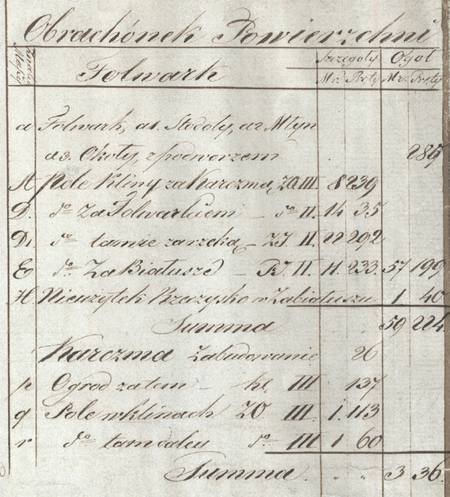 Obrachónek Powierzchni
Szczegóły Ogół
Folwark Mr. Pręty Mr. Pręty
a Folwark, a1. Stodoły, a2 Młyn
a3. Chałty, z podworzem 285
A Pole Kliny za Karczmą, ZO III. 8 239
D. do Za Folwarkiem — do II. 14 35
Di do tamże za rzeką — ZJ II. 22 292
E do. Za Białusze — II. 11. 233. 57 199
H Nieużytek w Zabiałuszu 1 40
Summa 59 224
Karczma Zabudowanie 26
p Ogrod za tem — III 137
q Pole w klinach ZO III. 1. 113
r do do III 1 60
Summa . . . 3 36.